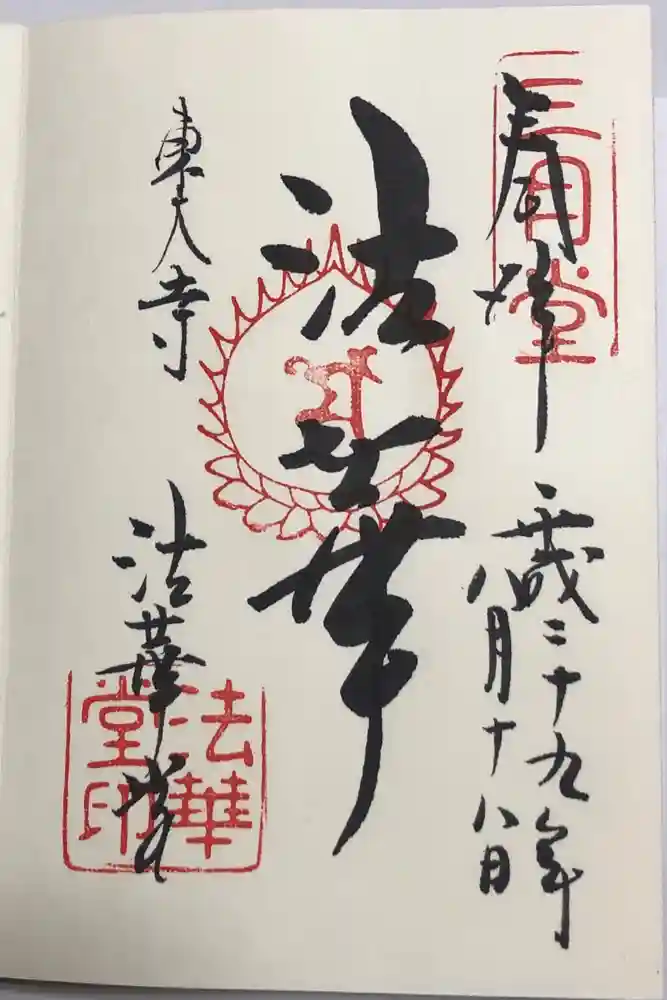 奉拝
三月堂
平成二十九年
八月十八日
法華
東大寺
法華堂
法華堂印